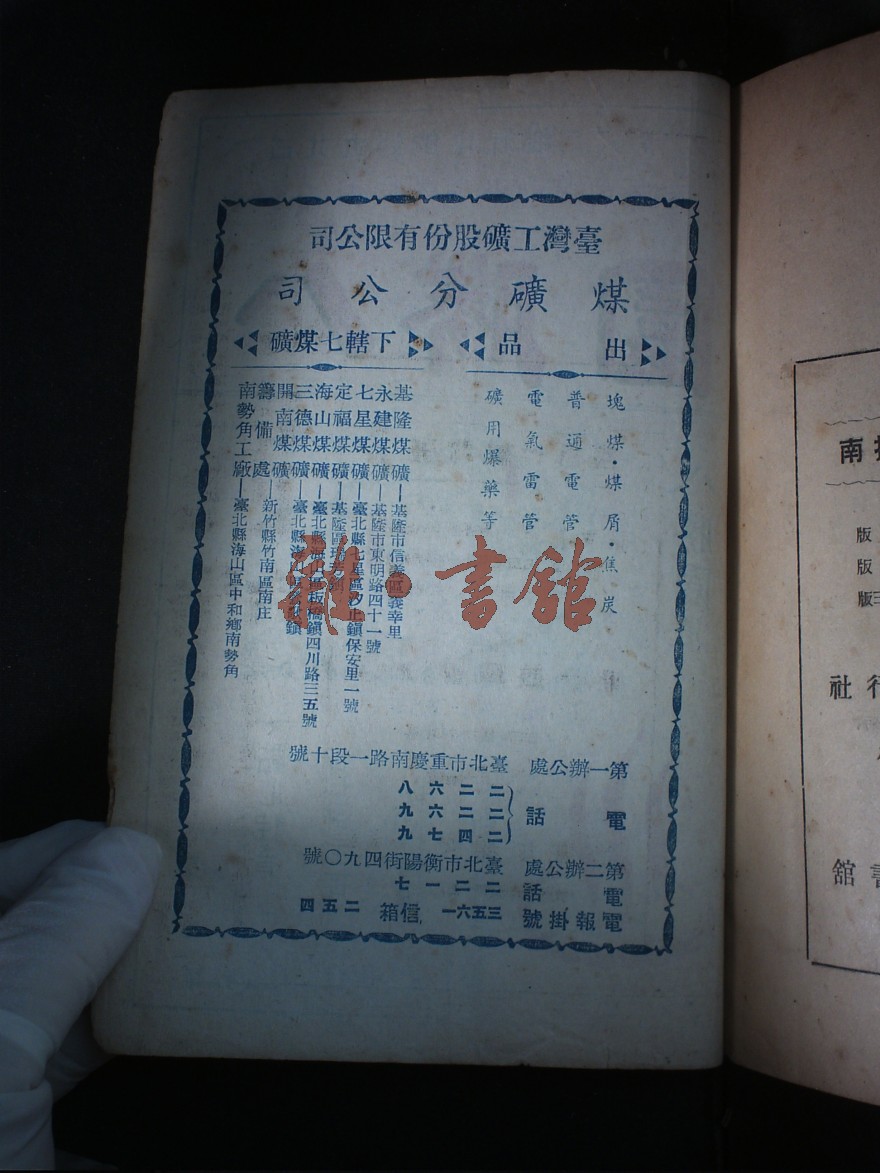 臺灣工礦股份有限公司
煤礦分公司
出品
塊煤·煤屑·焦炭
普通電管
電氣雷管
礦用爆藥等
下轄七煤礦
基隆煤礦—基隆市信義區義幸里
永建煤礦—基隆市東明路四十一號
七星煤礦—臺北縣七星區汐止鎮保安里一號
定福煤礦—基隆區瑞芳
海山煤礦—臺北縣海山區板橋鎮四川路三五號
三德煤礦—臺北縣海山區鎮
開南煤礦
籌備處—新竹縣竹南區南庄
南勢角工廠—臺北縣海山區中和鄉南勢角
雜·書館
第一辦公處 臺北市重慶南路一段十號
電話 二二六八
二二六九
二四七九
第二辦公處 臺北市衡陽街四九〇號
電話 二二一七
電報掛號 三五六一 信箱 二五四
南
版
版
版三
行社
書館